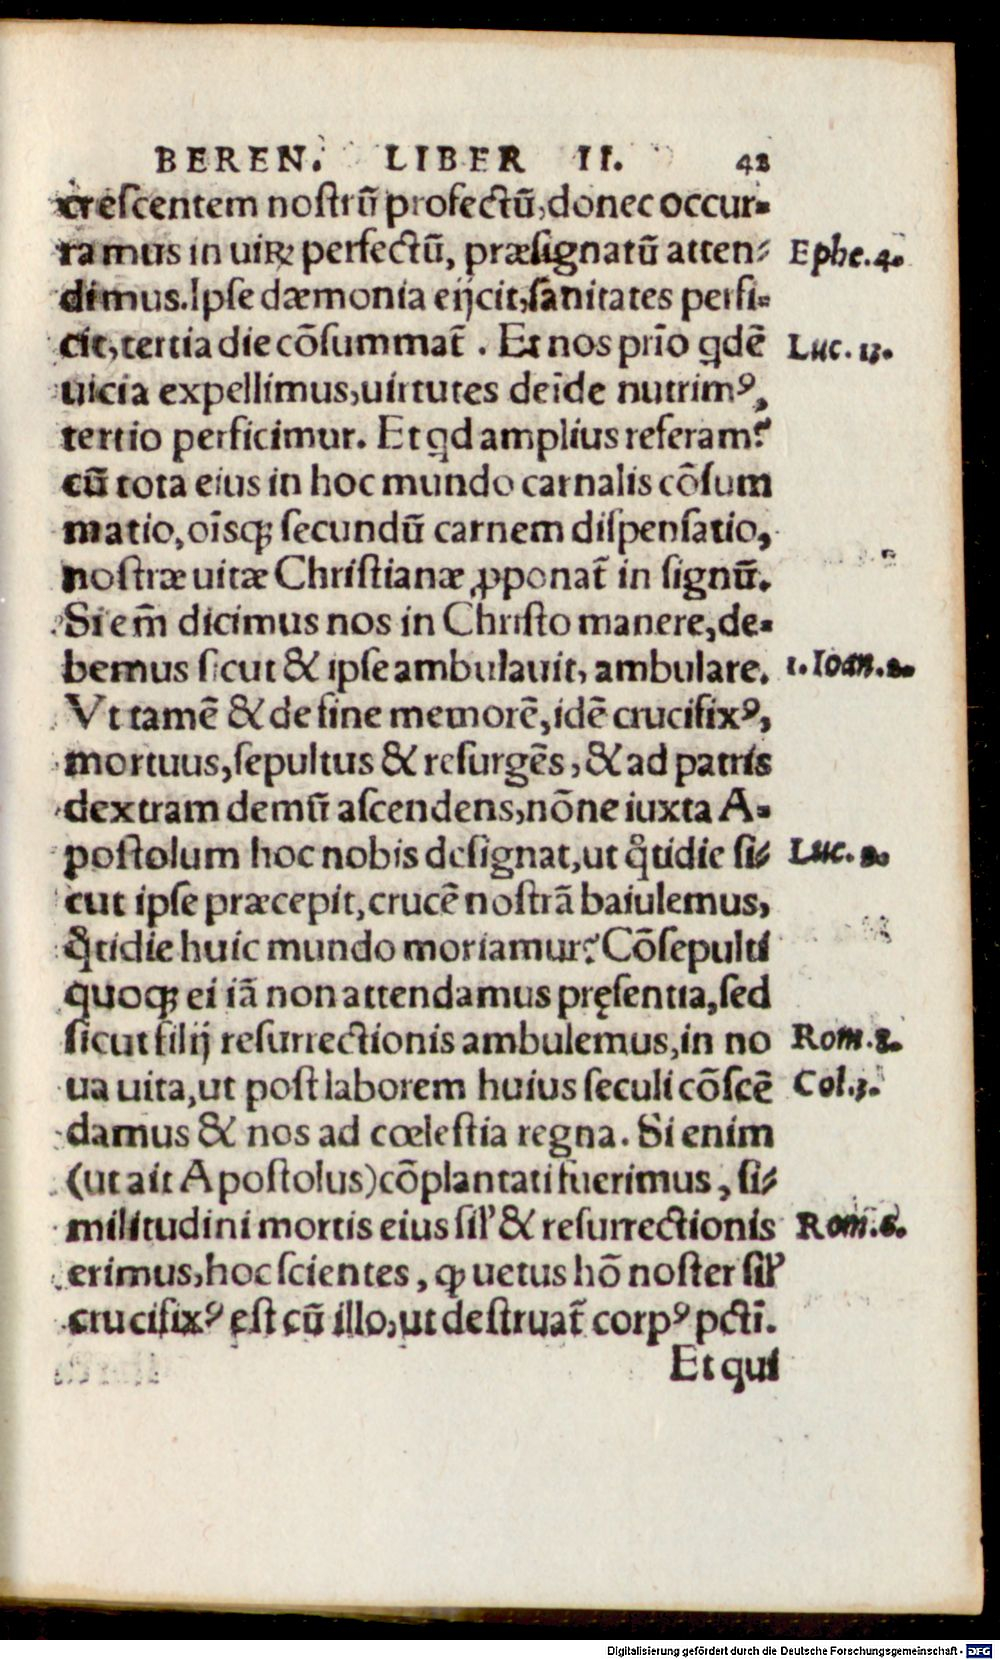 BEREN. LIBER II. 42
crescentem noſtrū profectū, donec occur-
ramus in uiꝝ perfectū, præſignatū atten-
dimus. Ipſe dæmonia eijcit, ſanitates perfi-
cit, tertia die cōſummat̄. Et nos prīo qdē
uicia expellimus, uirtutes deīde nutrimꝰ,
tertio perficimur. Et qd amplius referam?
cū tota eius in hoc mundo carnalis cōſum
matio, oīsqꝫ ſecundū carnem diſpenſatio,
noſtræ uitæ Chriſtianæ ꝓponat̄ in ſignū.
Si em̄ dicimus nos in Chriſto manere, de-
bemus ſicut & ipſe ambulauit, ambulare.
Vt tamē & de fine memorē, idē crucifixꝰ,
mortuus, ſepultus & reſurgēs, & ad patris
dextram demū aſcendens, nōne iuxta A-
poſtolum hoc nobis deſignat, ut qͥtidie ſi-
cut ipſe præcepit, crucē noſtrā baiulemus,
qͥtidie huic mundo moriamur? Cōſepulti
quoqꝫ ei iā non attendamus pręſentia, ſed
ſicut filij reſurrectionis ambulemus, in no
ua uita, ut poſt laborem huius ſeculi cōſcē
damus & nos ad cœleſtia regna. Si enim
(ut ait Apoſtolus) cōplantati fuerimus, ſi-
militudini mortis eius ſil' & reſurrectionis
erimus, hoc ſcientes, ꝙ uetus hō noſter ſil'
crucifixꝰ eſt cū illo, ut deſtruat̄ corpꝰ pctī.
Et qui
Ephe. 4.
Luc. 13.
1. Ioan. 2.
Luc. 9.
Rom. 8.
Col. 3.
Rom. 6.
Digitalisierung gefördert durch die Deutsche Forschungsgemeinschaft - DFG